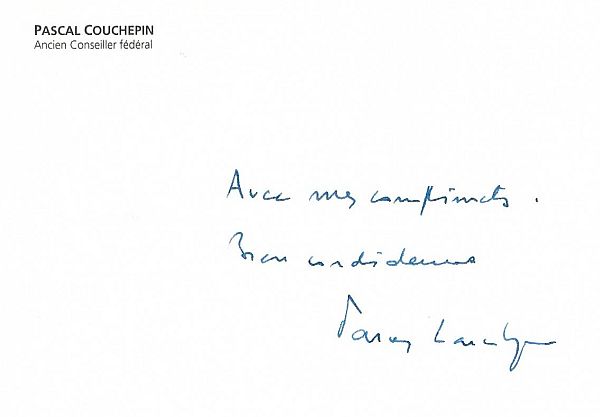 PASCAL COUCHEPIN
Ancien Conseiller fédéral
Avec mes compliments.
Bien cordialement
Pascal Couchepin